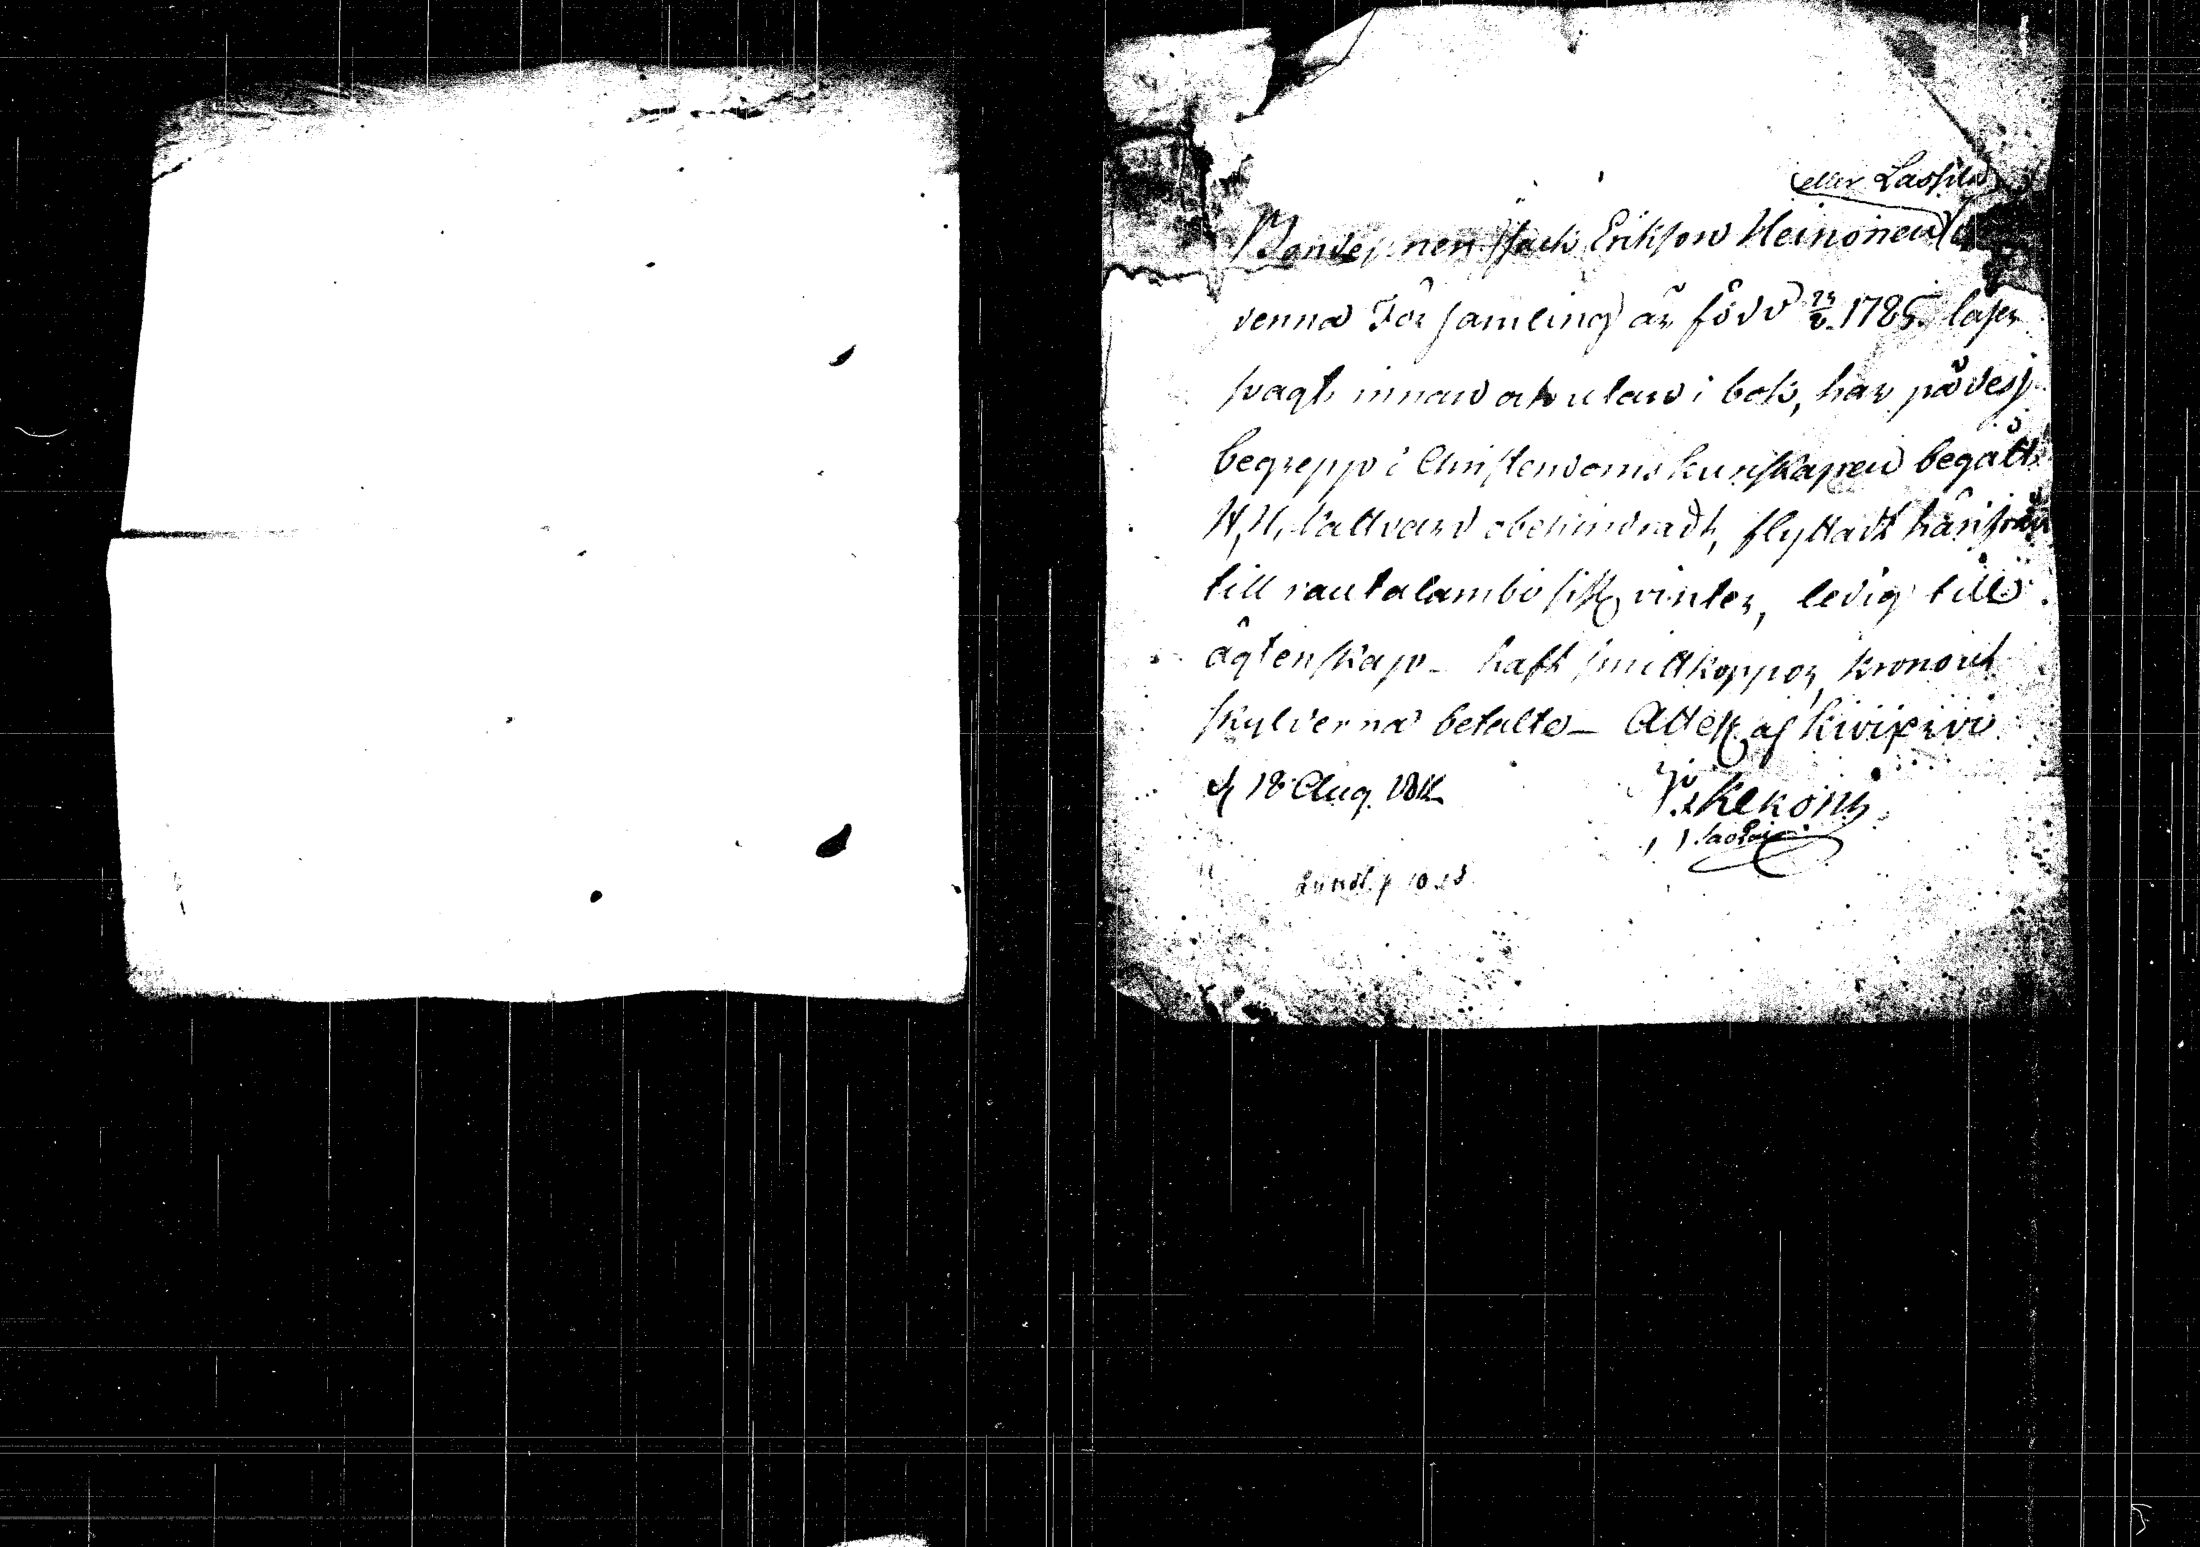 (eller Lassila)
Bondes: nen Jfack Erikson Heinonen
denna Församling är född 1785. läser
svagt innan och utan i bok, har på dess
begrepp i Christendoms kunskapen begått
H. H. Nattvard obehindradt, flyttadt härifrån
till Rautalambi sistl. vinter, ledig till
ägtenskap _ haft smittkoppor, kronout
skylderna betalte _ Attest. af Kivijervi
d 18 Aug.